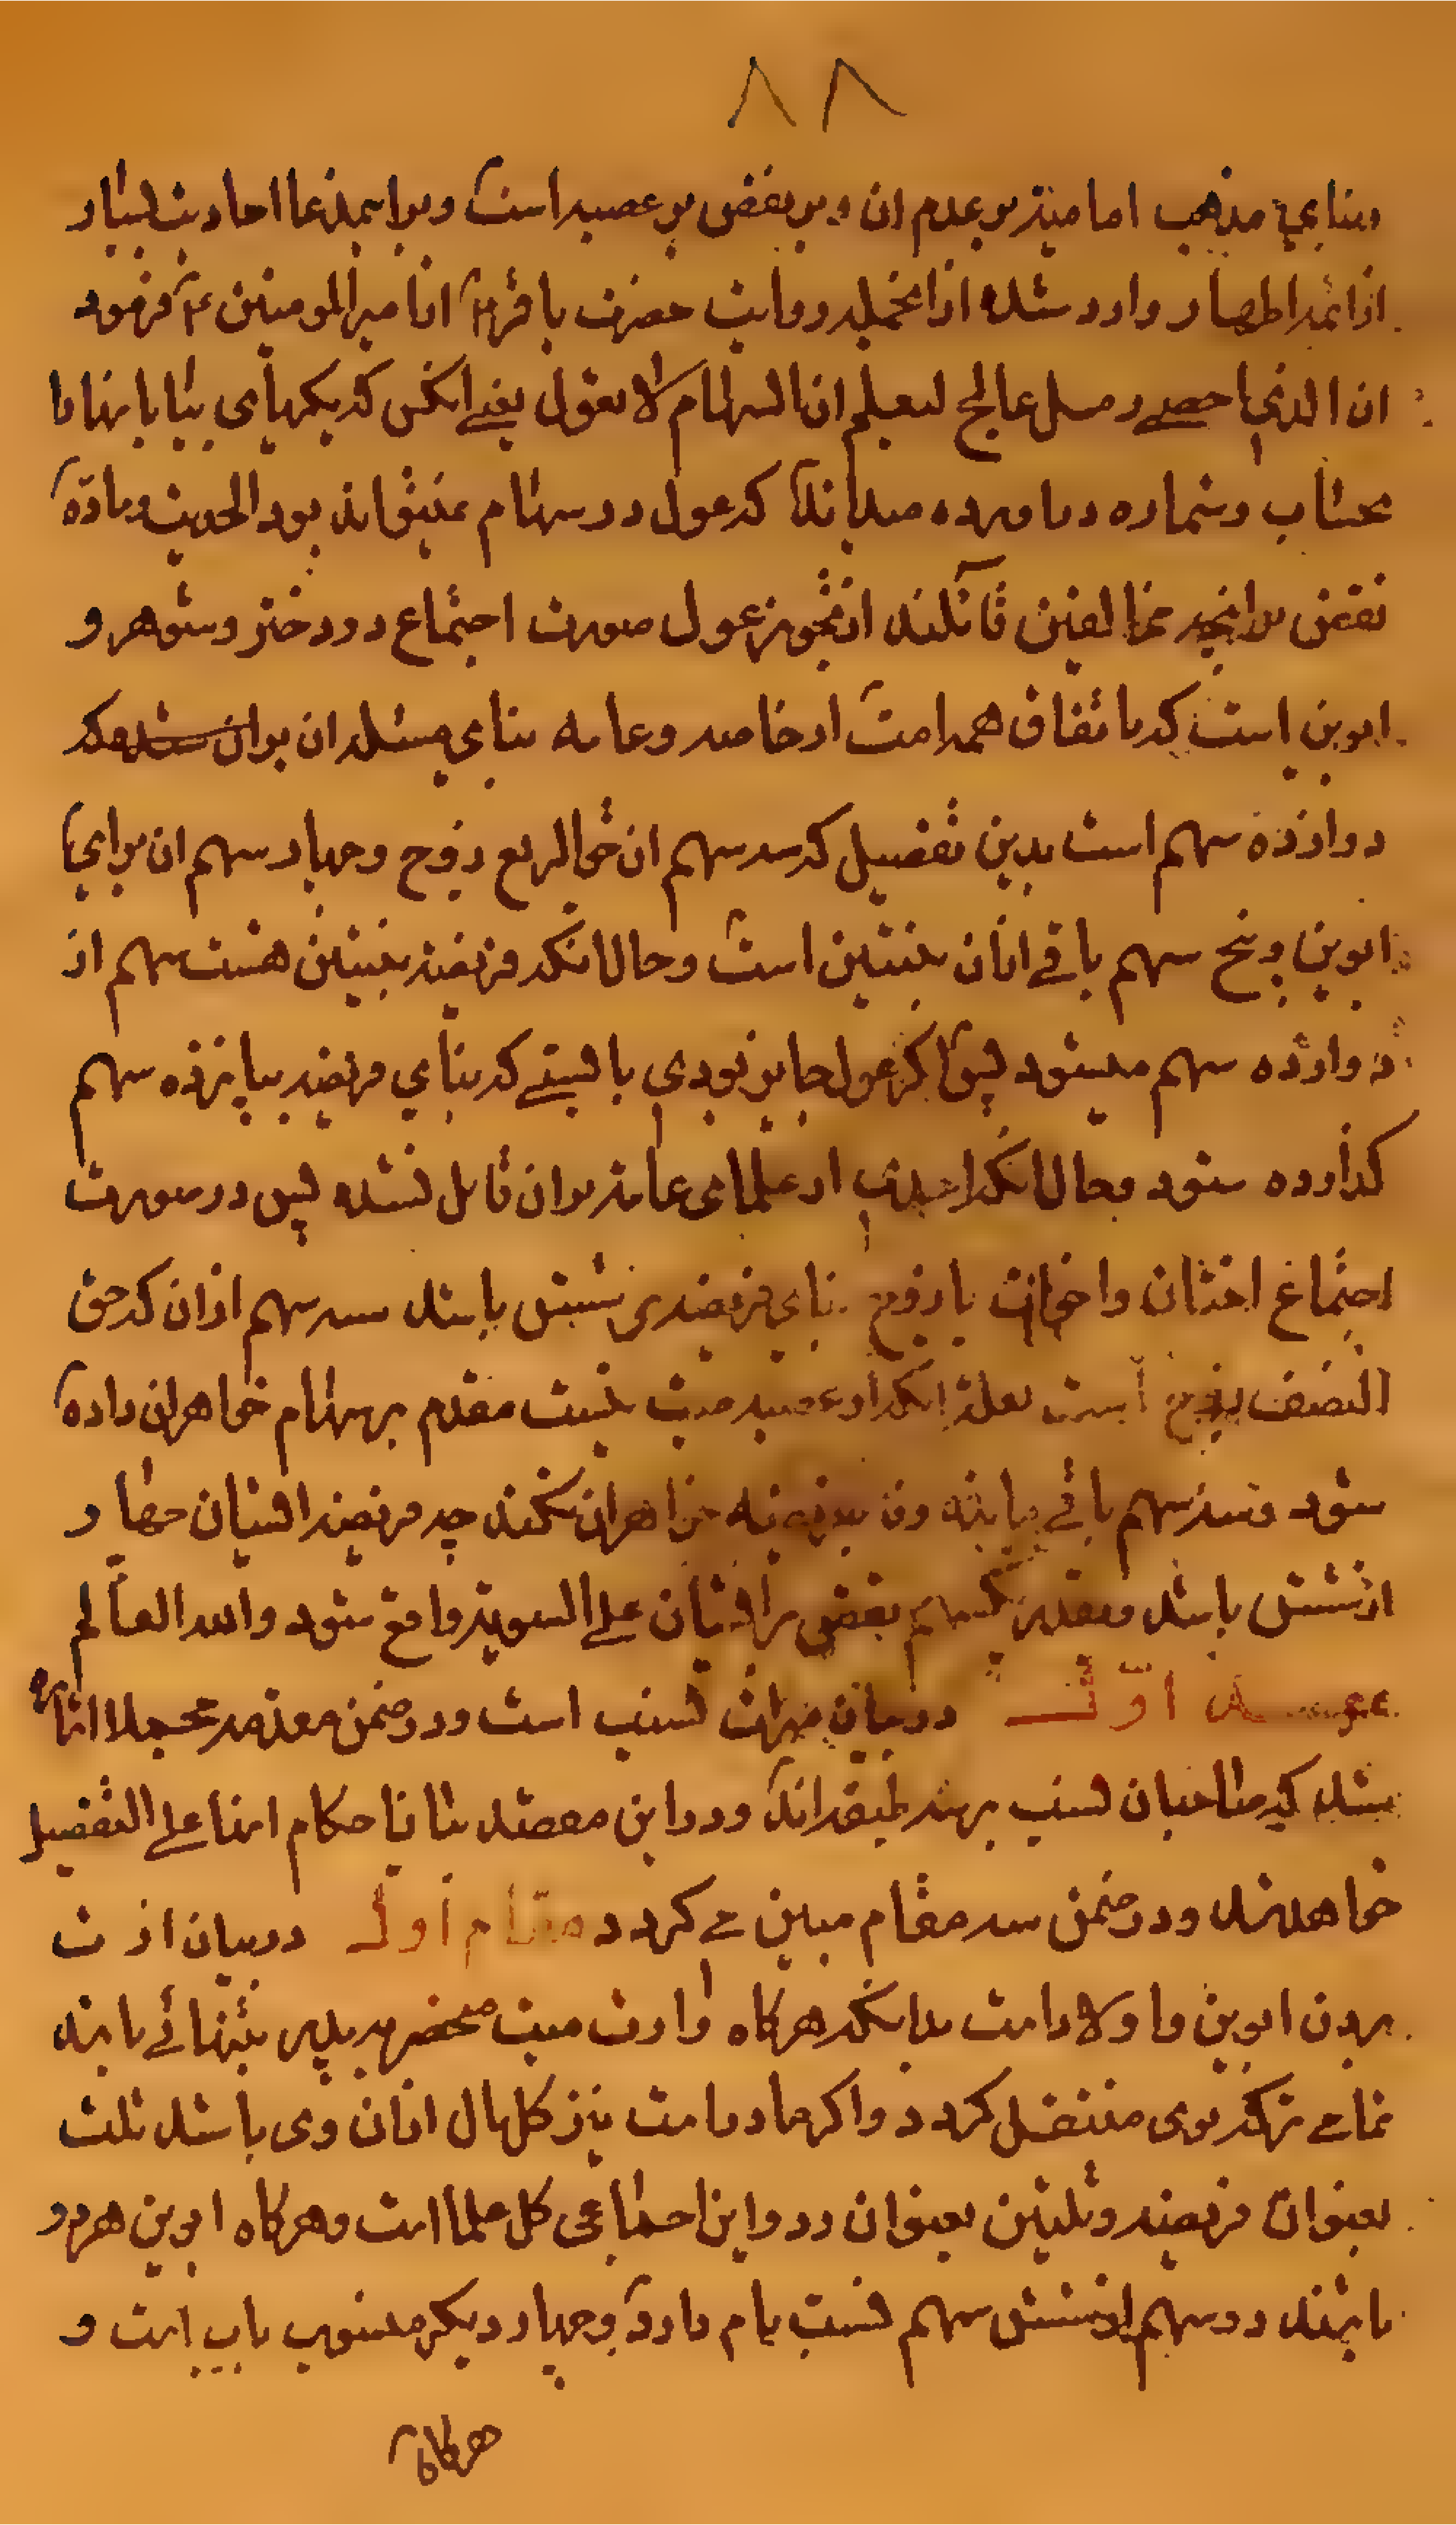 ۸۸
وبنای مذهب امامیه بر عدم ان و بر نقض بر عصبه است و بر این مدعا احادیث بسیار
از ائمه اطهار وارد شده ازانجمله روایت حضرت باقر ع از امیرالمومنین ع فرمود
ان الذی احصی رمل عالج لیعلم ان السهام لا تعول یعنی انکس که ریکهای بیابانها را
بحساب و شماره دراورده میداند که عول در سهام نمیتواند بود الحدیث و ماده
نقض برانچه مخالفین قائلند از تجویز عول صورت اجتماع دو دختر و شوهر و
ابوین است که باتفاق همه امت از خاصه و عامه بنای مسئله ان بران شده که
دوازده سهم است بدین تفصیل که سه سهم ان حق الربع زوج و چهار سهم ان برای
ابوین و پنج سهم باقی ازان بنتین است و حال انکه فریضه بنتین هشت سهم از
دوازده سهم میشود پس اکر عول جایز بودی بایستی که بنای فریضه بپانزده سهم
کذارده شود و حال انکه احدی از علمای عامه بران قایل نشده پس در صورت
اجتماع اختان و اخوات با زوج بنای فریضه بر شش باشد سه سهم ازان که حق
النصف زوج است بعلة انکه او عصبه میت نیست مقدم بر سهام خواهران داده
شود و سه سهم باقی مانده خواهران نکنند چه فریضه ایشان چهار
از شش باشد و بقدر یکسهم نقض بر ایشان علی السویه واقع شود والله العالم
مقصد اول در بیان میراث نسب است و در ضمن مقدمه مجملا اشاره
شد که صاحبان نسب بر سه طبقه اند و در این مقصد بیان احکام انها علی التفصیل
خواهد شد و در ضمن سه مقام مبین می کردد مقام اول در بیان ارث
بردن ابوین و اولاد است بدانکه هرکاه وارث میت منحصر بپدر بتنهائی باشد
تمامی ترکه بوی منتقل کردد و اکر مادر است نیز کل مال ازان وی باشد ثلث
بعنوان فریضه و ثلثین بعنوان رد و این اجماعی کل علما است و هرکاه ابوین هر دو
باشند دو سهم از شش سهم قسمت بام دارد و چهار دیکر منسوب باب است و
هرکاه